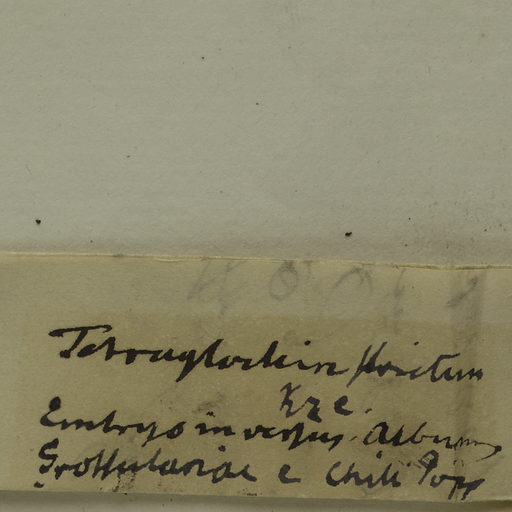 Tetraglochin strictum
Kze.
Embryo inversus. Album
Grossulariae e Chili Pöpp